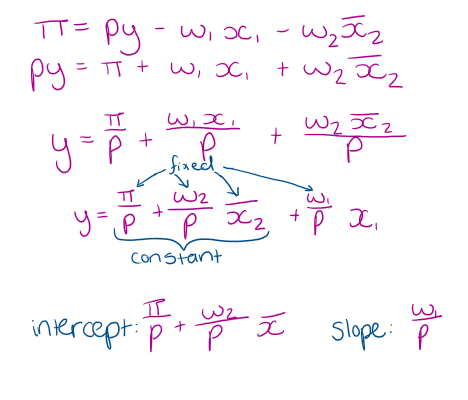 π = py - w₁x₁ - w₂x̅₂
py = π + w₁x₁ + w₂x̅₂
y = π/p + w₁x₁/p + w₂x̅₂/p
fixed
y = π/p + w₂/p x̅₂ + w₁/p x₁
constant
intercept: π/p + w₂/p x̅ slope: w₁/p